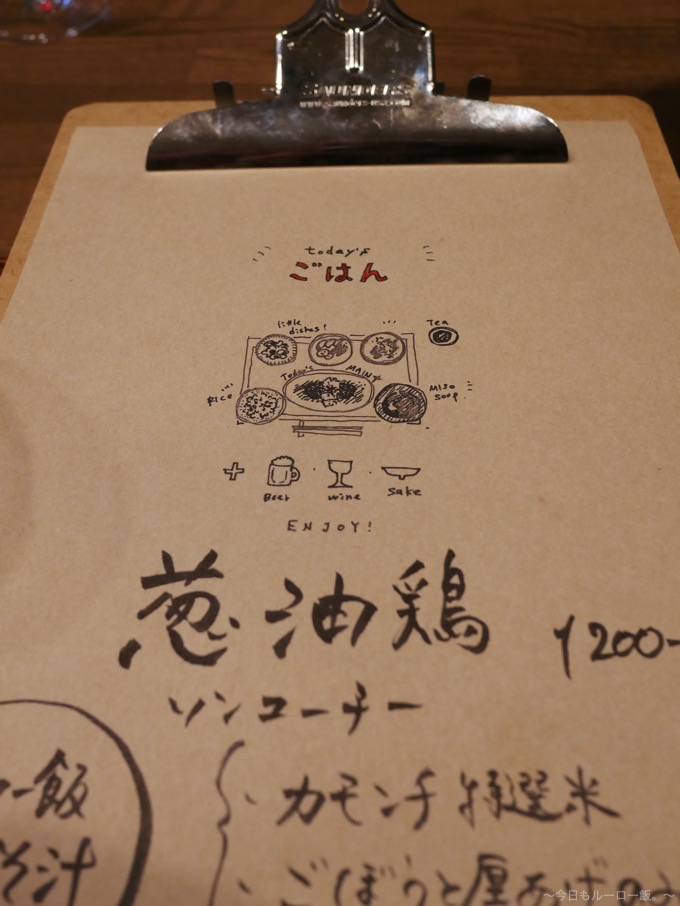 today's
ごはん
little
dishes!
Tea
Today's MAIN
Rice
Miso
soup
+
Beer ・ wine ・ sake
ENJOY!
葱油鶏 1200-
ソンユーチー
ー飯
そ汁
・カモンチ特選米
・ごぼうと厚あげの
〜今日もルーロー飯。〜